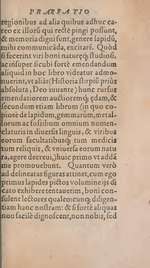 PRÆFATIO
regionibus ad alia quibus adhuc ca-
reo ex illorũ qui recte pingi possunt,
& memoria digni sunt, genere lapidũ,
mihi communicãda, excitarẽ. Quòd
si fecerint viri boni naturæq; studiosi,
ac insuper sicubi fortè emendandum
aliquid in hoc libro videatur admo-
nuerint, vt aliàs (Historia stirpiũ priùs
absoluta, Deo iuuante) hunc rursus
emendatiorem auctioremq; edam, &
secundum etiam librum (in quo co-
pia de lapidum, gemmarum, metal-
lorum ac fossilium omnium nomen-
claturis in diuersis linguis, & viribus
eorum facultatibusq; tum medicis
tum reliquis, & vniuersa eorum natu
ra, agere decreui,) huic primo vt addã
me commouebunt. Quantum verò
ad delineatas figuras attinet, cum ego
primus lapides pictos volumine
cato exhibere tentauerim, boni con-
sulent lectores qualemcunq; diligen-
tiam hanc nostram: & si fortè aliquas
non facilè dignoscent, non nobis, sed